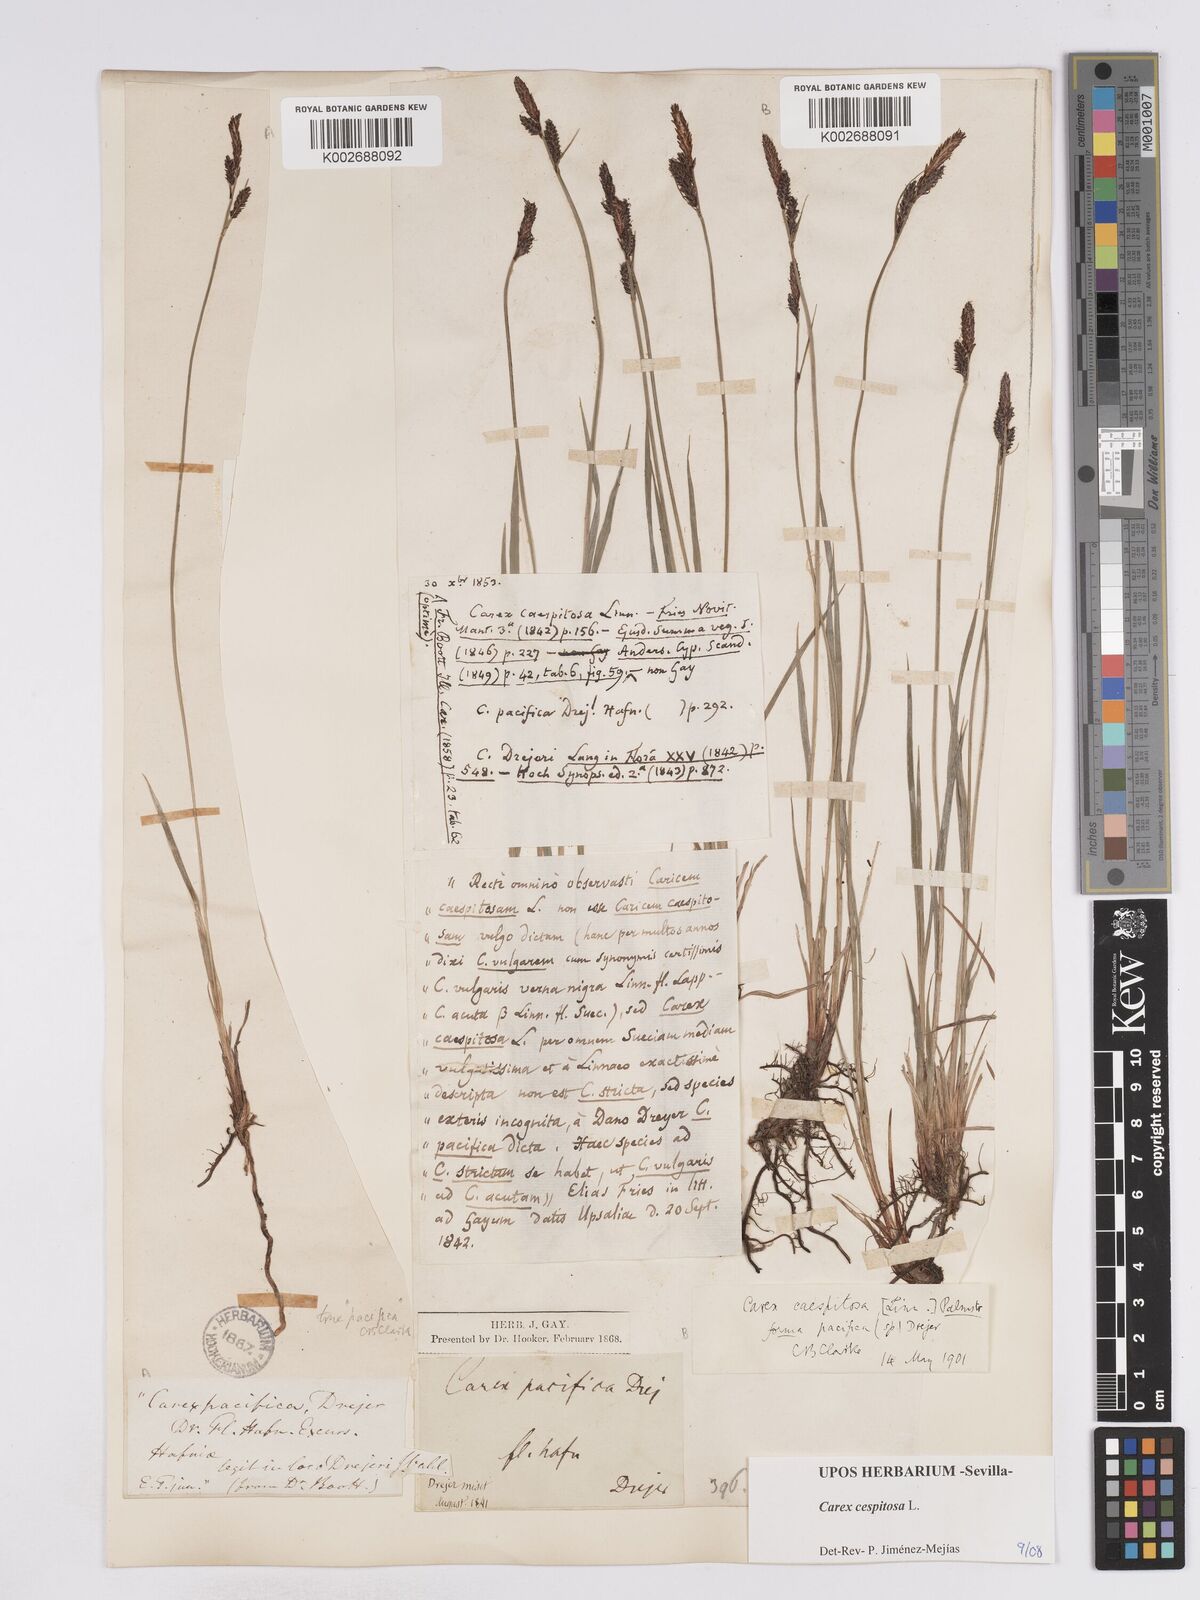 ROYAL BOTANIC GARDENS KEW
K002688092
A
ROYAL BOTANIC GARDENS KEW
K002688091
B
30 xbr 1853.
Carex caespitosa Linn. – Fries Novit.
Mant. 3.a (1842) p. 156. – Ejusd. Summa veg. S.
(1846) p. 227 – non Gay Anders. Cyp. Scand.
(1849) p. 42, tab. 6, fig. 59, – non Gay
C. pacifica Drej! Hafn. ( ) p. 292.
C. Drejeri Lang in Flora XXV (1842) p.
548. – Koch Synops. ed. 2.a (1843) p. 872.
Fr. Boott Ill. Car. (1858) p. 23. tab. 62
(optimè).
" Rectè omninò observasti Caricem
" caespitosam L. non esse Caricem caespito-
" sam vulgo dictam (hanc per multos annos
" dixi C. vulgarem cum synonymis certissimis
" C. vulgaris verna nigra Linn. fl. Lapp. –
" C. acuta β Linn. fl. Suec.), sed Carex
" caespitosa L. per omnem Sueciam mediam
" vulgatissima et à Linnaeo exactissimè
" descripta non est C. stricta, sed species
" exteris incognita, à Dano Dreyer C.
" pacifica dicta. Haec species ad
" C. strictam se habet, ut C. vulgaris
" ad C. acutam )) Elias Fries in litt.
ad Gayum datis Upsaliae d. 20 Sept.
1842.
true "pacifica"
CB Clarke
HERBARIUM
1867
HOOKERIANUM
A
"Carex pacifica, Drejer
Dr. Fl. Hafn. Excurs.
Hafniae
legit in loco Drejeri
(from Dr. Boott.)
HERB. J. GAY.
Presented by Dr. Hooker. February 1868.
B
Carex pacifica Drej
fl. hafn
Drejer
Drejer misit
august. 1841
396.
Carex caespitosa [Linn.]
forma pacifica (sp) Drejer
CB Clarke 14 May 1901
UPOS HERBARIUM -Sevilla-
Carex cespitosa L.
Det-Rev- P. Jiménez-Mejías 9/08
centimeters
M001007
All values are average
Don Williams
inches
Density
Royal Botanic Gardens
Kew
0 1 2 3 4 5 6 7 8 9 10
cm